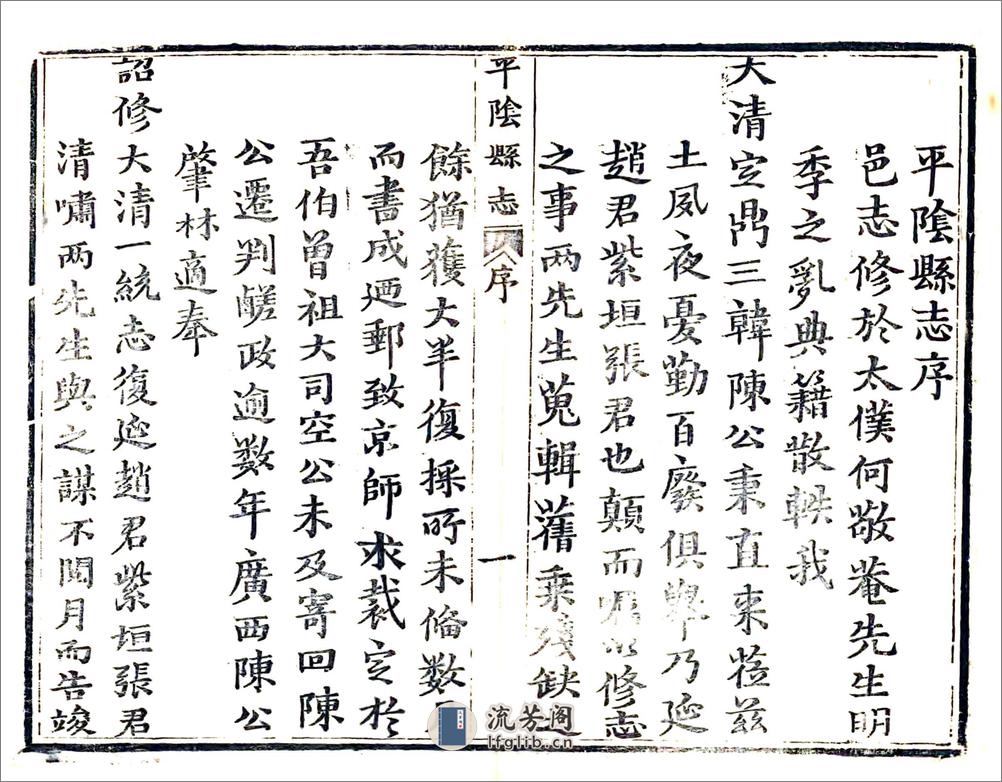 平陰縣志序
邑志修於太僕何敬菴先生明
季之亂典籍散軼我
大清定鼎三韓陳公秉直來蒞茲
土夙夜憂勤百廢俱舉乃延
趙君紫垣張君也顛而嘱以修志
之事两先生蒐輯舊乗殘缺
平陰縣志
序
一
餘猶獲大半復採所未偹数
而書成廼郵致京師求裁定於
吾伯曾祖大司空公未及寄回陳
公遷判鹾政逾数年廣西陳公
肇林適奉
詔修大清一統志復延趙君紫垣張君
清嘯两先生與之謀不閲月而告竣
流芳阁
lfglib.cn